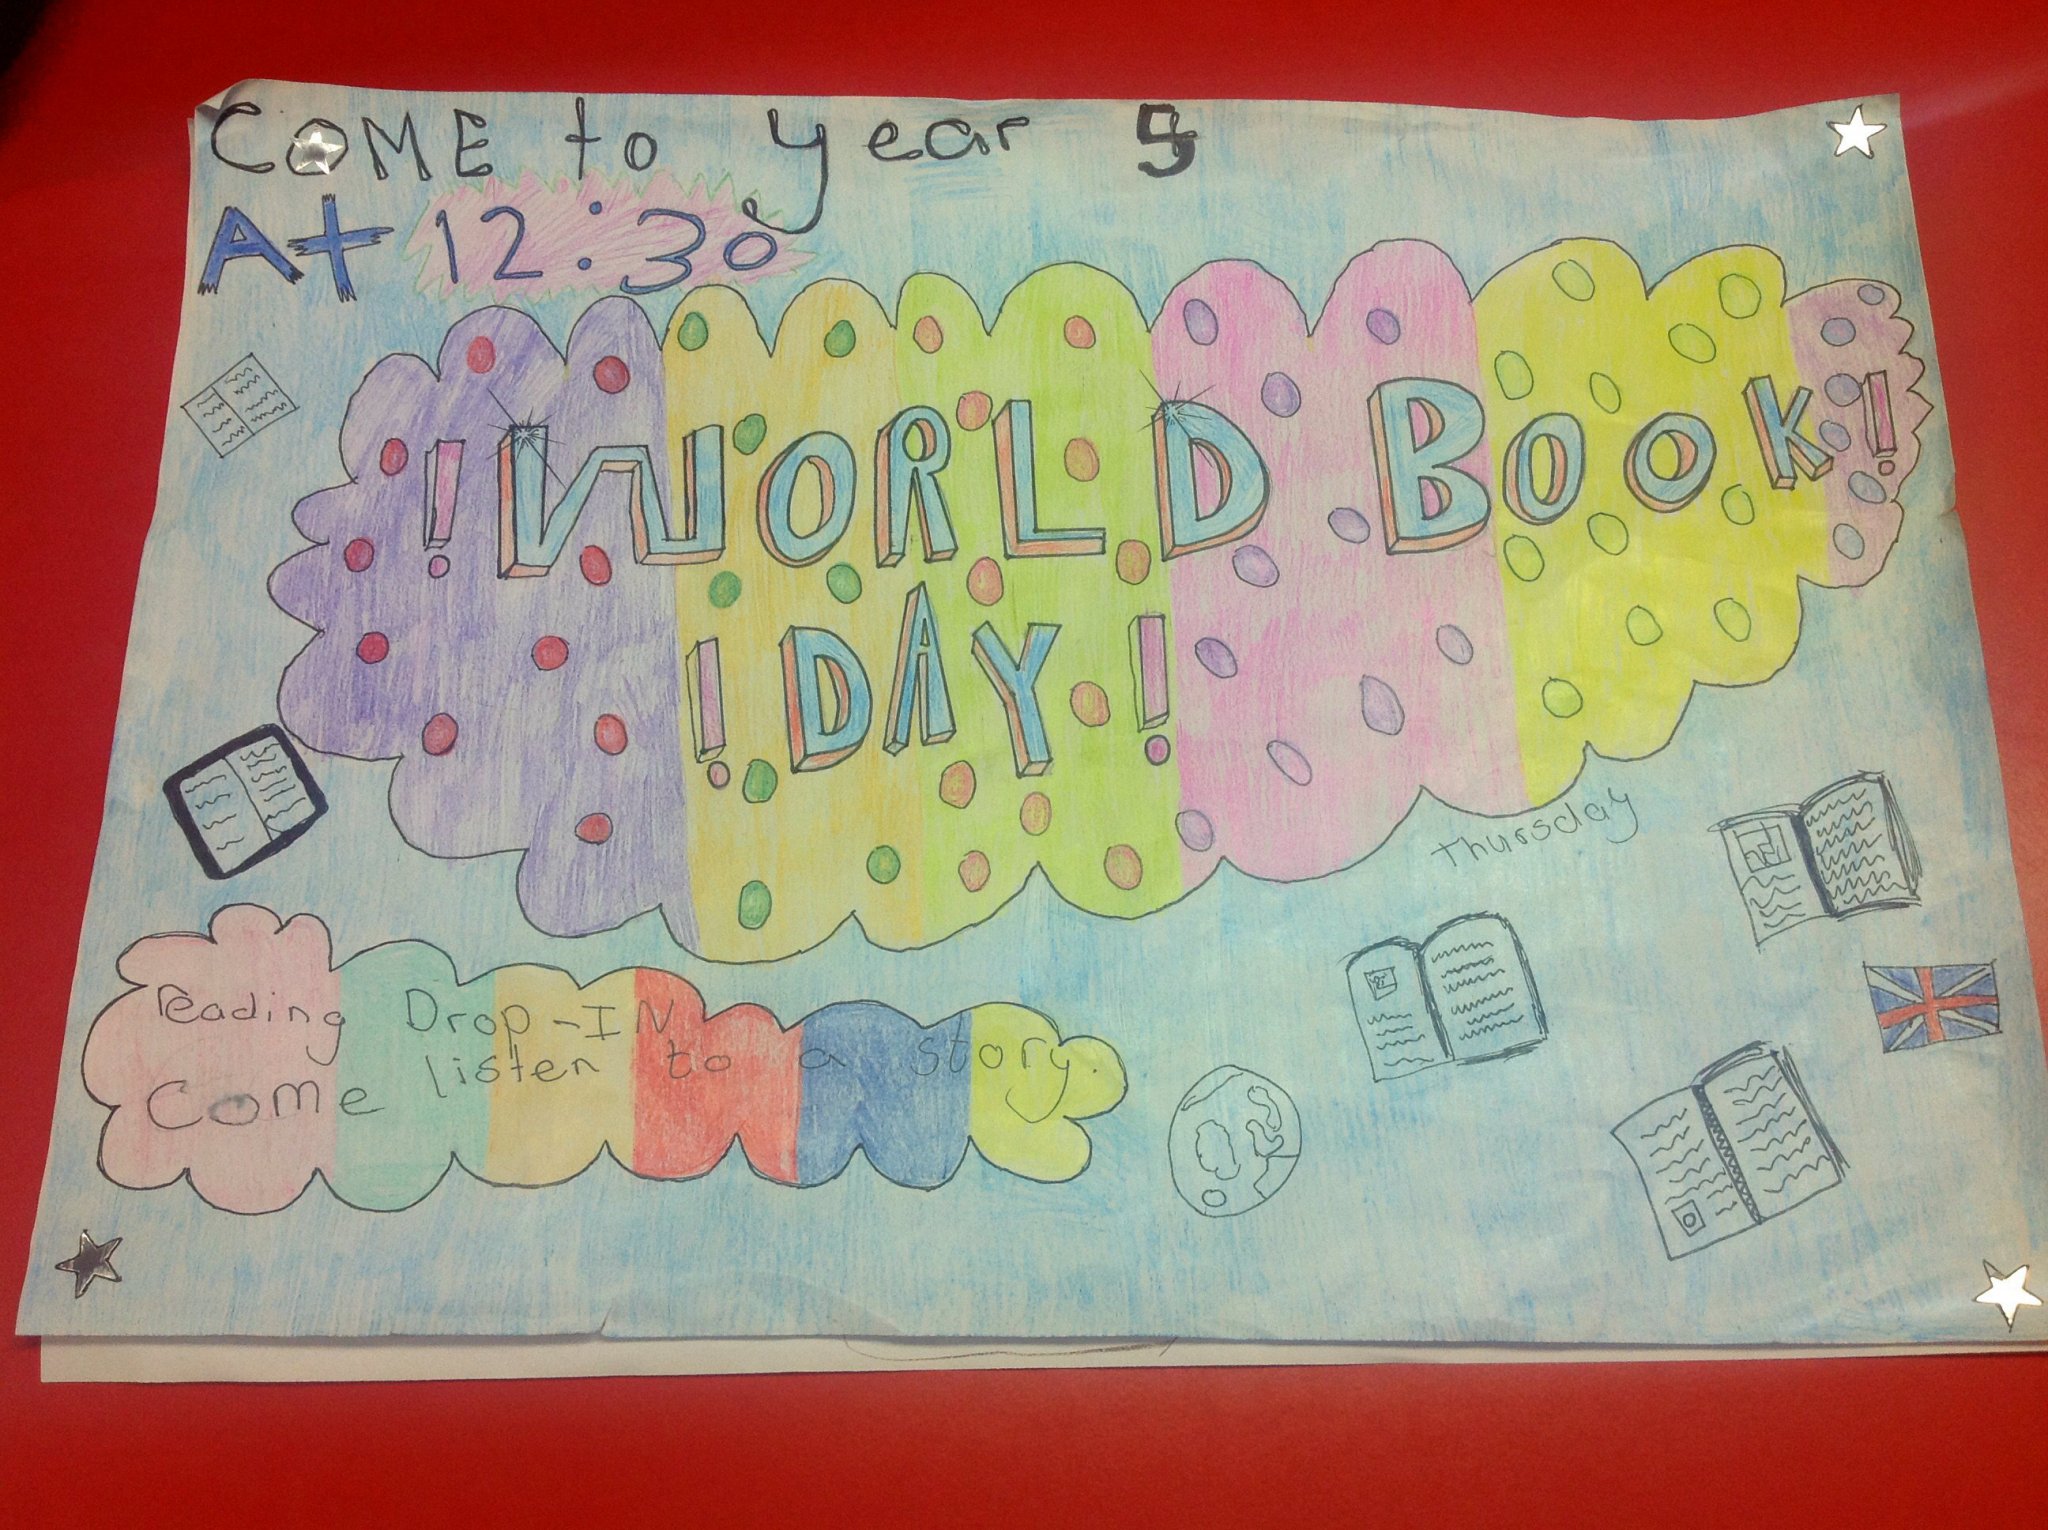 COME to year 5
At 12:30
!WORLD BOOK!
!DAY!
thursday
reading Drop-IN
Come listen to a story.